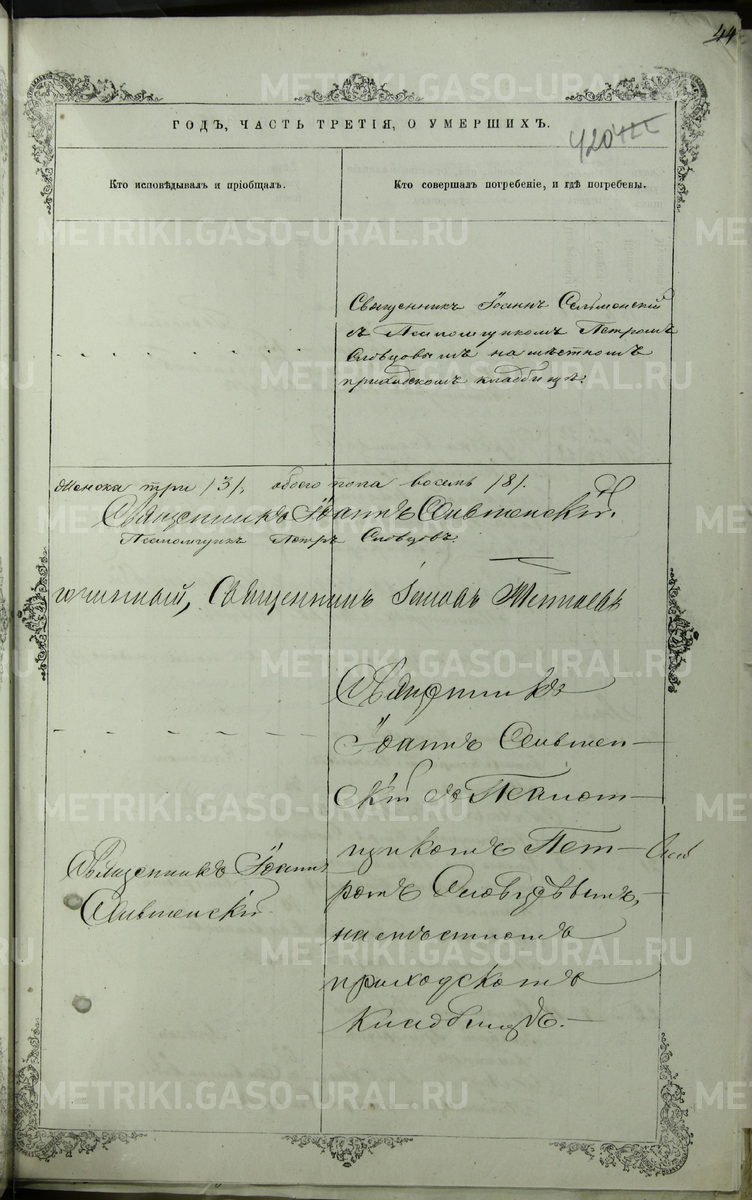 44
METRIKI.GASO-URAL.RU
ГОДЪ, ЧАСТЬ ТРЕТІЯ, О УМЕРШИХЪ.
420
Кто исповѣдывалъ и пріобщалъ.
Кто совершалъ погребеніе, и гдѣ погребены.
Священникъ Іоаннъ Сельменскій
съ Псаломщикомъ Петромъ
Словцовымъ на мѣстномъ
приходскомъ кладбищѣ.
женска три /3/, обоего пола восемь /8/.
Священникъ Іоаннъ Сельменскій.
Псаломщикъ Петръ Словцовъ.
Священникъ
Священникъ
Іоаннъ Сельмен-
скій съ Псалом-
щикомъ Пет-
ромъ Словцовымъ,
на мѣстномъ
приходскомъ
кладбищѣ.-
Священникъ Іоаннъ
Сельменскій